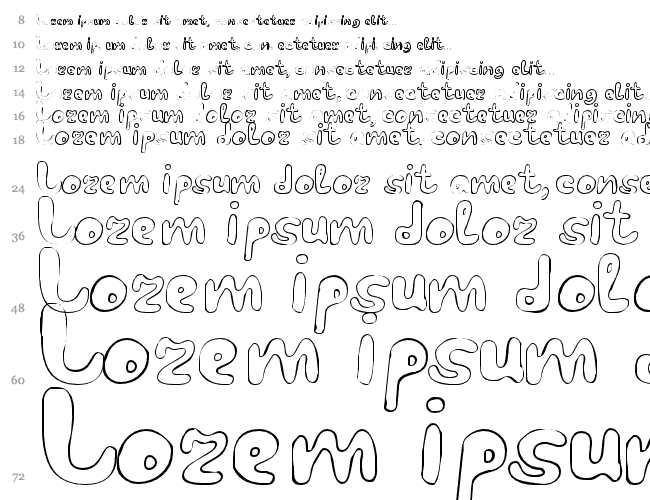 8 Lorem ipsum dolor sit amet, consectetuer adipiscing elit...
10 Lorem ipsum dolor sit amet, consectetuer adipiscing elit...
12 Lorem ipsum dolor sit amet, consectetuer adipiscing elit...
14 Lorem ipsum dolor sit amet, consectetuer adipiscing elit.
16 Lorem ipsum dolor sit amet, consectetuer adipiscing
18 Lorem ipsum dolor sit amet, consectetuer ad
24 Lorem ipsum dolor sit amet, conse
36 Lorem ipsum dolor sit
48 Lorem ipsum dolo
60 Lorem ipsum d
72 Lorem ipsum